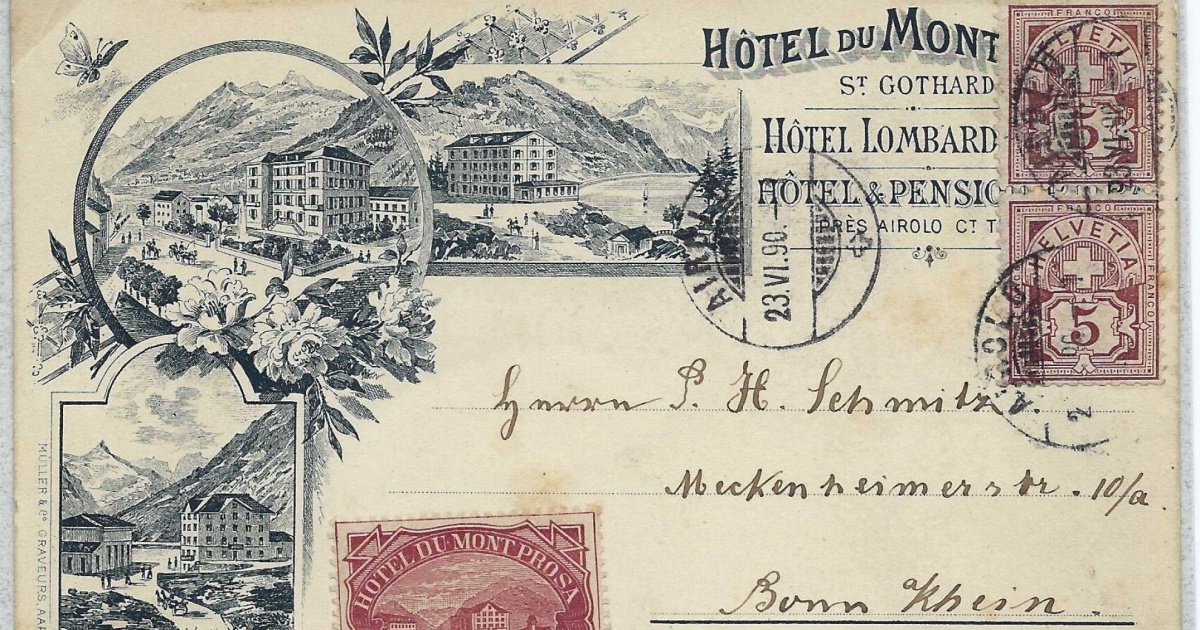 HÔTEL DU MONT
ST GOTHARD
HÔTEL LOMBARD
HÔTEL & PENSIO
PRÈS AIROLO CT T
FRANCO
HELVETIA
5
FRANCO
FRANCO
HELVETIA
5
FRANCO
AIROLO
23.VI.90.
AIROLO
Herrn P. H. Schmitz.
Meckenheimerstr. 10/a
Bonn Rhein.
HOTEL DU MONT PROSA
MÜLLER & Co. GRAVEURS, AAR